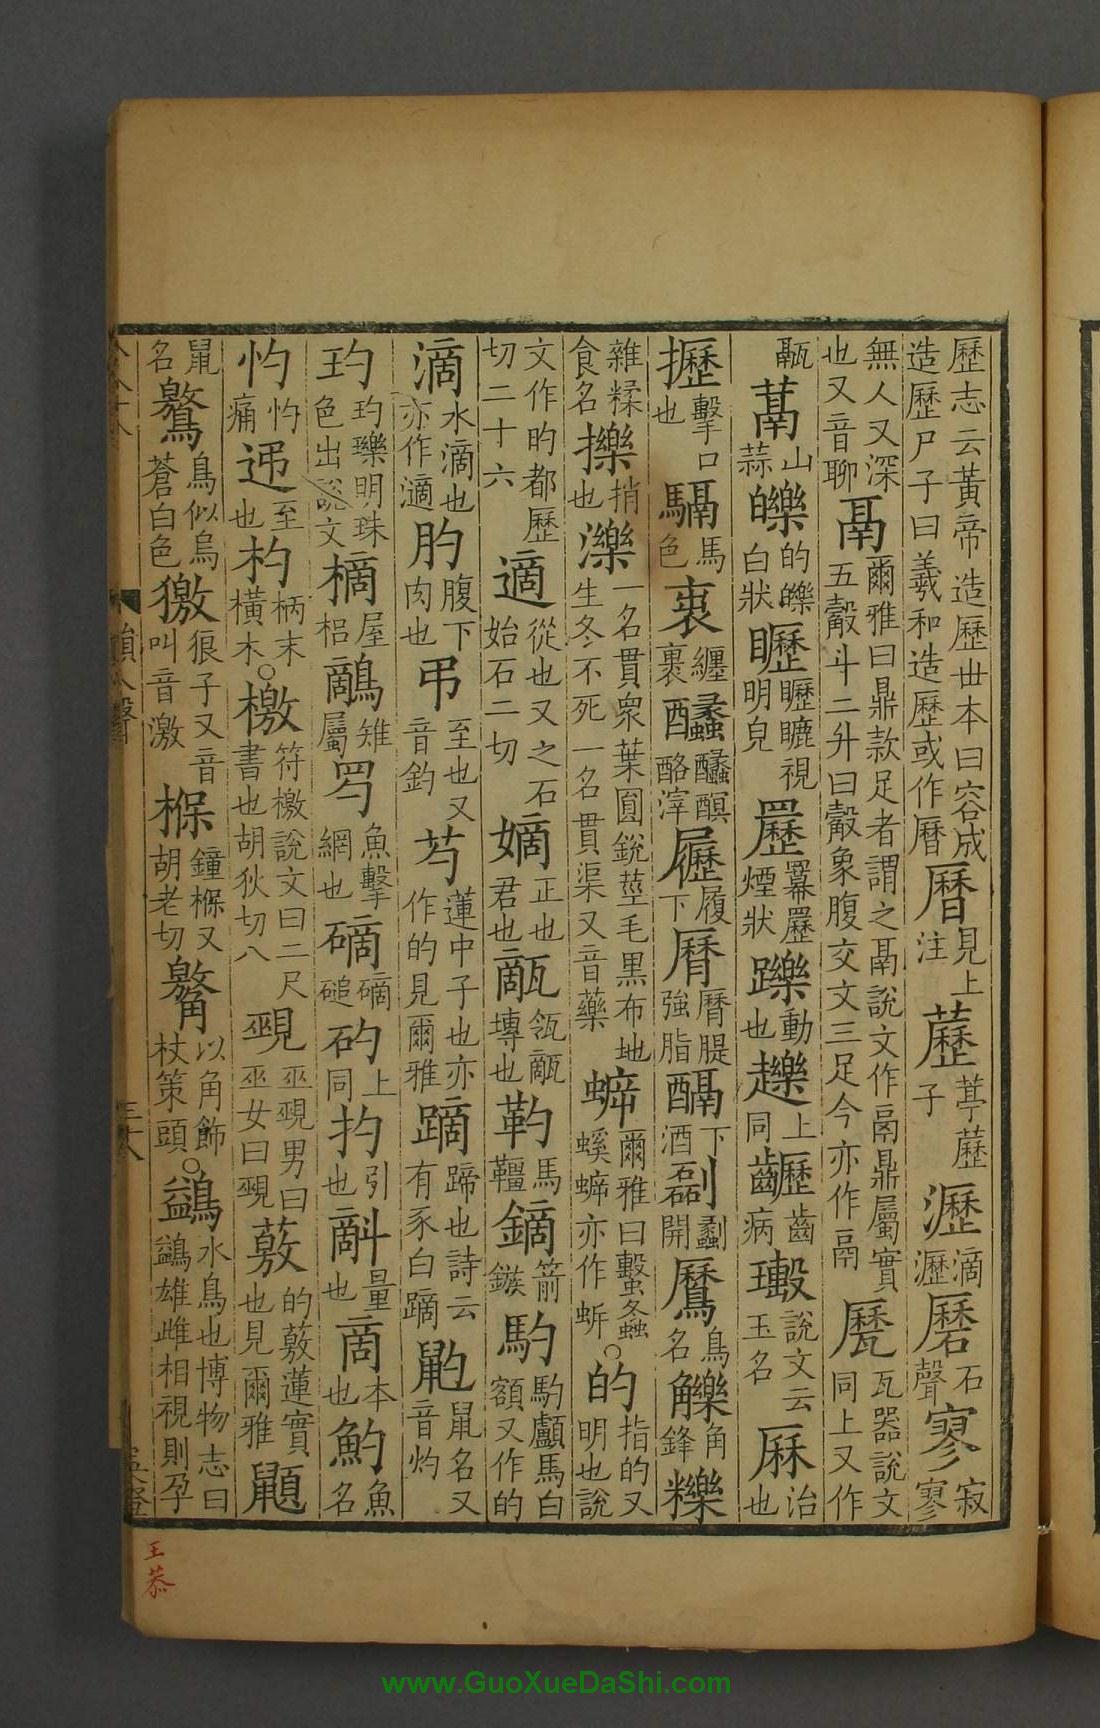 歷志云黃帝造歷世本曰容成造歷尸子曰羲和造歷或作曆曆見上注藶葶藶子瀝滴瀝磿石聲寥寂寥
無人又深也又音聊鬲爾雅曰鼎款足者謂之鬲說文作鬲鼎屬實五觳斗二升曰觳象腹交文三足今亦作鬲㽁瓦器說文同上又作
䰛䓪山蒜皪的皪白狀矋矋瞜視明皃䍥羃䍥煙狀躒動也趮上同𪙽齒病瓥說文云玉名厤治也
攊擊也口䮥馬色裛纏裹䤙酪滓屜履下䐼䐼腰強脂䤙下酒㔉剺開鷅鳥名觻角鋒䊪
雜糅食名擽捎也濼一名貫眾葉圓銳莖毛黑布地生冬不死一名貫渠又音藥䗀爾雅曰螜螽螇䗀亦作蚸○的指的又明也說
文作旳都歷切二十六適從也又之石始石二切嫡正也君也甋瓴甋塼也靮馬韁鏑箭鏃馰馰顱馬白額又作的
滴水滴也亦作適肑腹下肉也弔至也又音釣芍蓮中子也亦作的見爾雅蹢蹄也詩云有豕白蹢鼩鼠名又音灼
玓玓瓅明珠色出說文樀屋梠鸐雉屬罞魚擊網也碲磓䂽上同扚引也㪷量也啇本也魡魚名
忉忉痛迡至也杓柄末橫木○檄符檄說文曰二尺書也胡狄切八覡巫覡男曰巫女曰覡薂的薂蓮實也見爾雅
鼠名鷔鳥似烏蒼白色獥狼子又音叫音激㮱鐘㮱又胡老切觷以角飾杖策頭○鷁水鳥也博物志曰鷁雄雌相視則孕
王恭
www.GuoXueDaShi.com